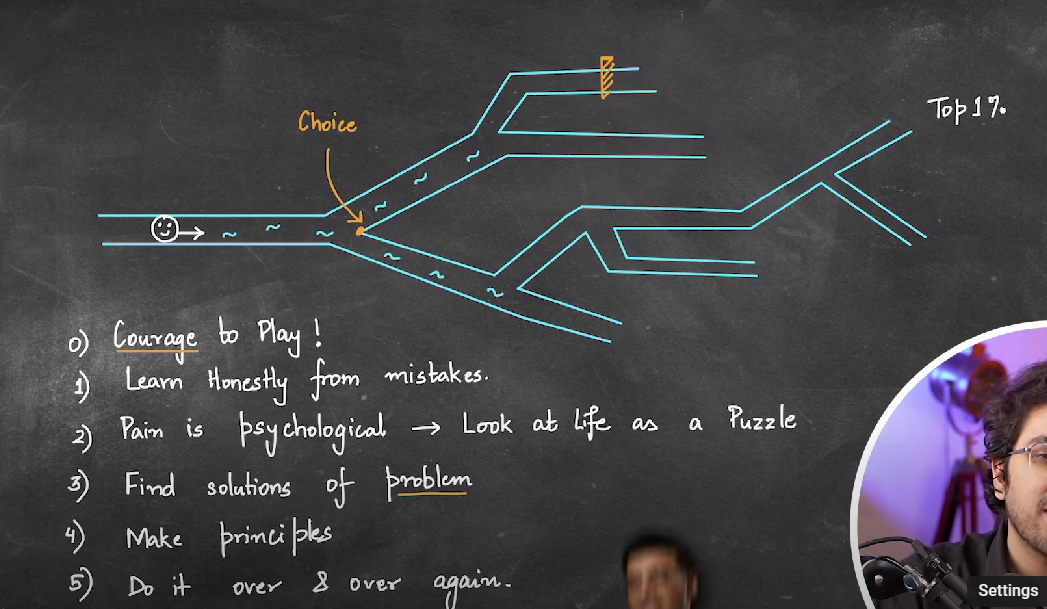 Top 1%
Choice
0) Courage to Play!
1) Learn Honestly from mistakes.
2) Pain is psychological → Look at life as a Puzzle
3) Find solutions of problem
4) Make principles
5) Do it over & over again.
Settings